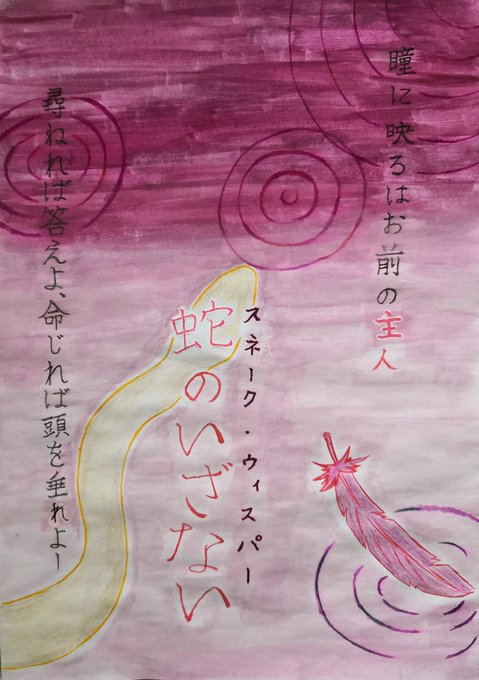 瞳に映るはお前の主人
スネーク・ウィスパー
蛇のいざない
尋ねれば答えよ、命じれば頭を垂れよー